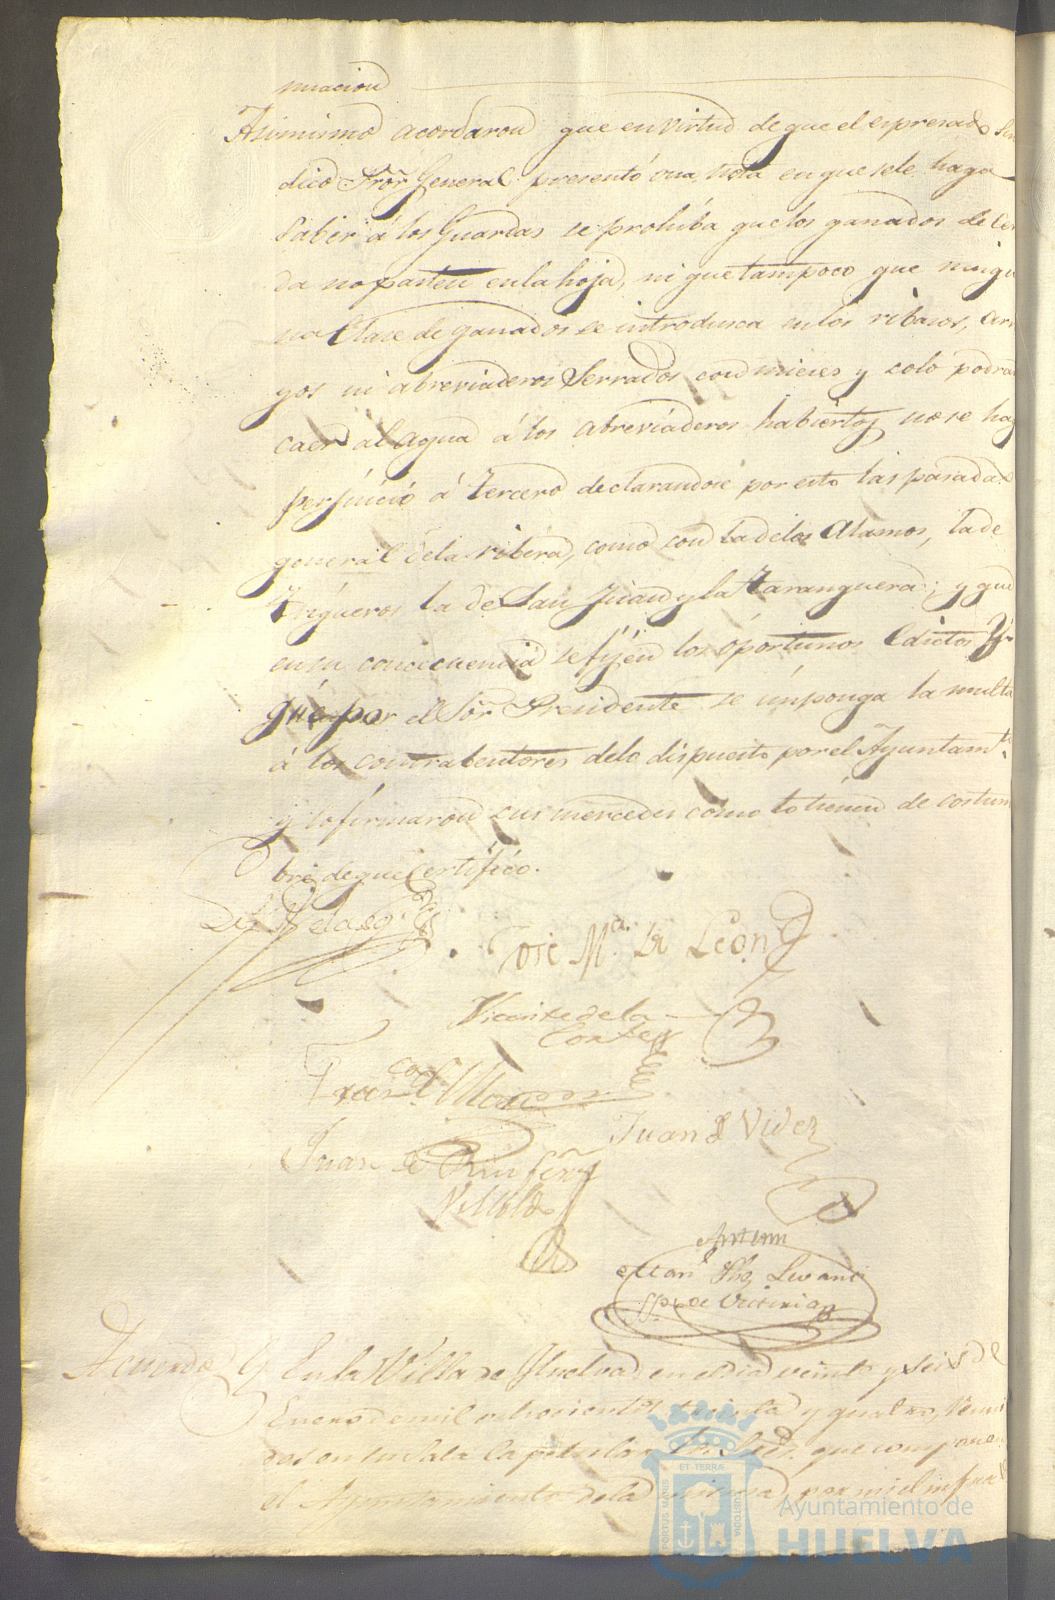 nuacion
Asimismo acordaron que en virtud de que el espresado Sin
dico Pror General presentó una nota en que se le haga
saber á los Guardas se prohiba que los ganados de Cer
da no pasten en la hoja, ni que tampoco que ningu
na Clase de ganados se introdusca en los ribasos, arro
yos ni abreviaderos Serrados con mieses y solo podran
caer al agua á los abreviaderos habiertos no se haga
perjuicio á tercero declarandose por esto las pasadas
general de la ribera, como son la de los Alamos, la de
Trigueros la de San Juan y la Taranguera; y que
en su consecuencia se fijen los oportunos Edictos y
que por el Sor Presidente se imponga la multa
á los contrabentores de lo dispuesto por el Ayuntamto
y lo firmaron sus mercedes como lo tienen de costum
bre de que Certifico.
José Ma. de León
Vicente de la
Corte
Franco
Juan de Videz
Juan de
Antemi
Acuerdo En la Villa de Huelva en el dia veinte y seis de
Enero de mil ochocientos treinta y quatro, reuni
dos en su Sala Capitular los Sres. que componen
el Ayuntamiento de la misma, por mi el infra
PORTUS MARIS
ET TERRÆ
CUSTODIA
Ayuntamiento de
HUELVA